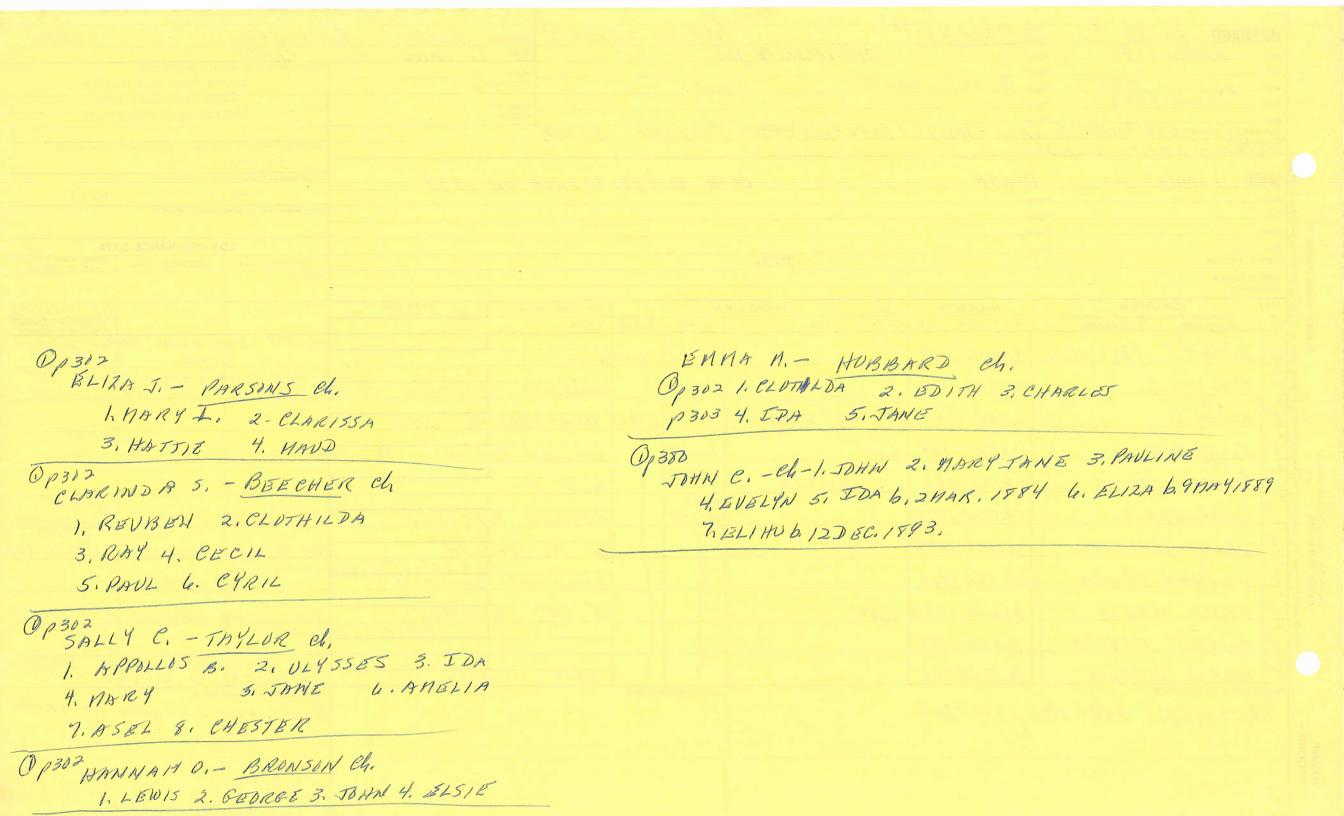 ① p302
ELIZA J. - PARSONS ch.
1. MARY L. 2. CLARISSA
3. HATTIE 4. MAUD
① p302
CLARINDA S. - BEECHER ch
1. REUBEN 2. CLOTHILDA
3. RAY 4. CECIL
5. PAUL 6. CYRIL
① p302
SALLY C. - TAYLOR ch.
1. APPOLLOS B. 2. ULYSSES 3. IDA
4. MARY 5. JANE 6. AMELIA
7. ASEL 8. CHESTER
① p302 HANNAH O. - BRONSON ch.
1. LEWIS 2. GEORGE 3. JOHN 4. ELSIE
EMMA M. - HUBBARD ch.
① p302 1. CLOTHILDA 2. EDITH 3. CHARLES
p303 4. IDA 5. JANE
① p300
JOHN C. - ch - 1. JOHN 2. MARY JANE 3. PAULINE
4. EVELYN 5. IDA b. 2 MAR. 1884 6. ELIZA b. 9 MAY 1889
7. ELIHU b. 12 DEC. 1893.